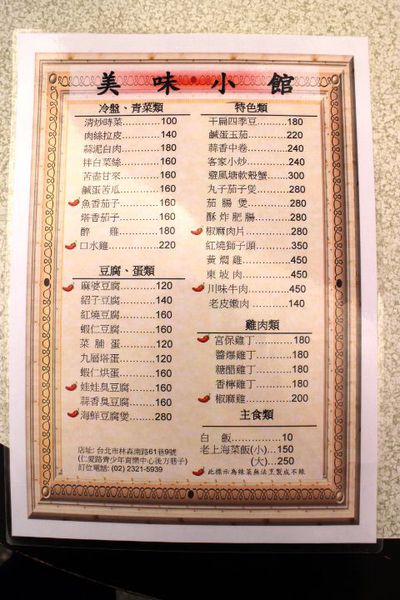 美味小館
冷盤、青菜類
清炒時菜............100
肉絲拉皮............140
蒜泥白肉............180
拌白菜絲............160
苦盡甘來............160
鹹蛋苦瓜............160
魚香茄子............160
塔香茄子............160
醉 雞............180
口水雞............220
豆腐、蛋類
麻婆豆腐............120
紹子豆腐............140
紅燒豆腐............160
蝦仁豆腐............160
菜脯蛋............120
九層塔蛋............120
蝦仁烘蛋............160
娃娃臭豆腐.........160
蒜香臭豆腐.........160
海鮮豆腐煲.........280
店址: 台北市林森南路61巷9號
(仁愛路青少年育樂中心後方巷子)
訂位電話: (02) 2321-5939
特色類
干扁四季豆.........180
鹹蛋玉茄............220
蒜香中卷............240
客家小炒............240
避風塘軟殼蟹......300
丸子茄子煲.........280
茄腸煲............280
酥炸肥腸............280
椒麻肉片............280
紅燒獅子頭.........350
黃燜雞............450
東坡肉............450
川味牛肉............450
老皮嫩肉............140
雞肉類
宮保雞丁............180
醬爆雞丁............180
糖醋雞丁............180
香檸雞丁............180
椒麻雞............200
主食類
白 飯............10
老上海菜飯(小)...150
(大)...250
此標示為辣菜無法烹製成不辣